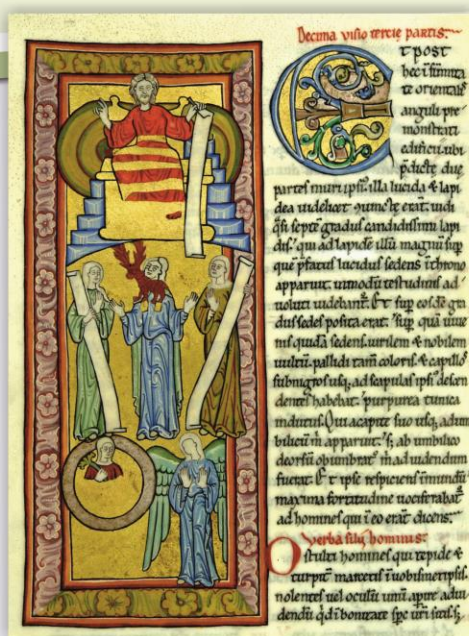 Decima visio tercie partis:
t post
hec i summita
te orientalis
anguli pre
monstrati
edificii. ubi
pdicte due
partes muri ipsi. illa lucida & lapi
dea videlicet iuncte erat. vidi
qsi septe gradus candidissimi lapi
dis. qui ad lapide illu magnu sup
que pfatus lucidus sedens i throno
apparuit. in modu testudinis ad
voluti videbant. Et sup eosde gra
dus sedes posita erat. sup qua iuve
nis quida sedens. virilem & nobilem
vultu. pallidi tam coloris. & capillos
subnigros usq; ad scapulas ipsi descen
dentes habebat. purpurea tunica
indutus. Qui a capite suo usq; ad um
bilicu m apparuit. s; ab umbilico
deorsu obumbrat' m ad videndum
fuerat. Et ipse respiciens i mundu
maxima fortitudine vociferabat
ad homines qui i eo erat dicens.
Verba filii hominis:
O stulti homines qui tepide &
turpit marcetis i vobismetipsis.
nolentes vel oculu unu apire ad vi
dendu qd i bonitate spc vri sitis. s;